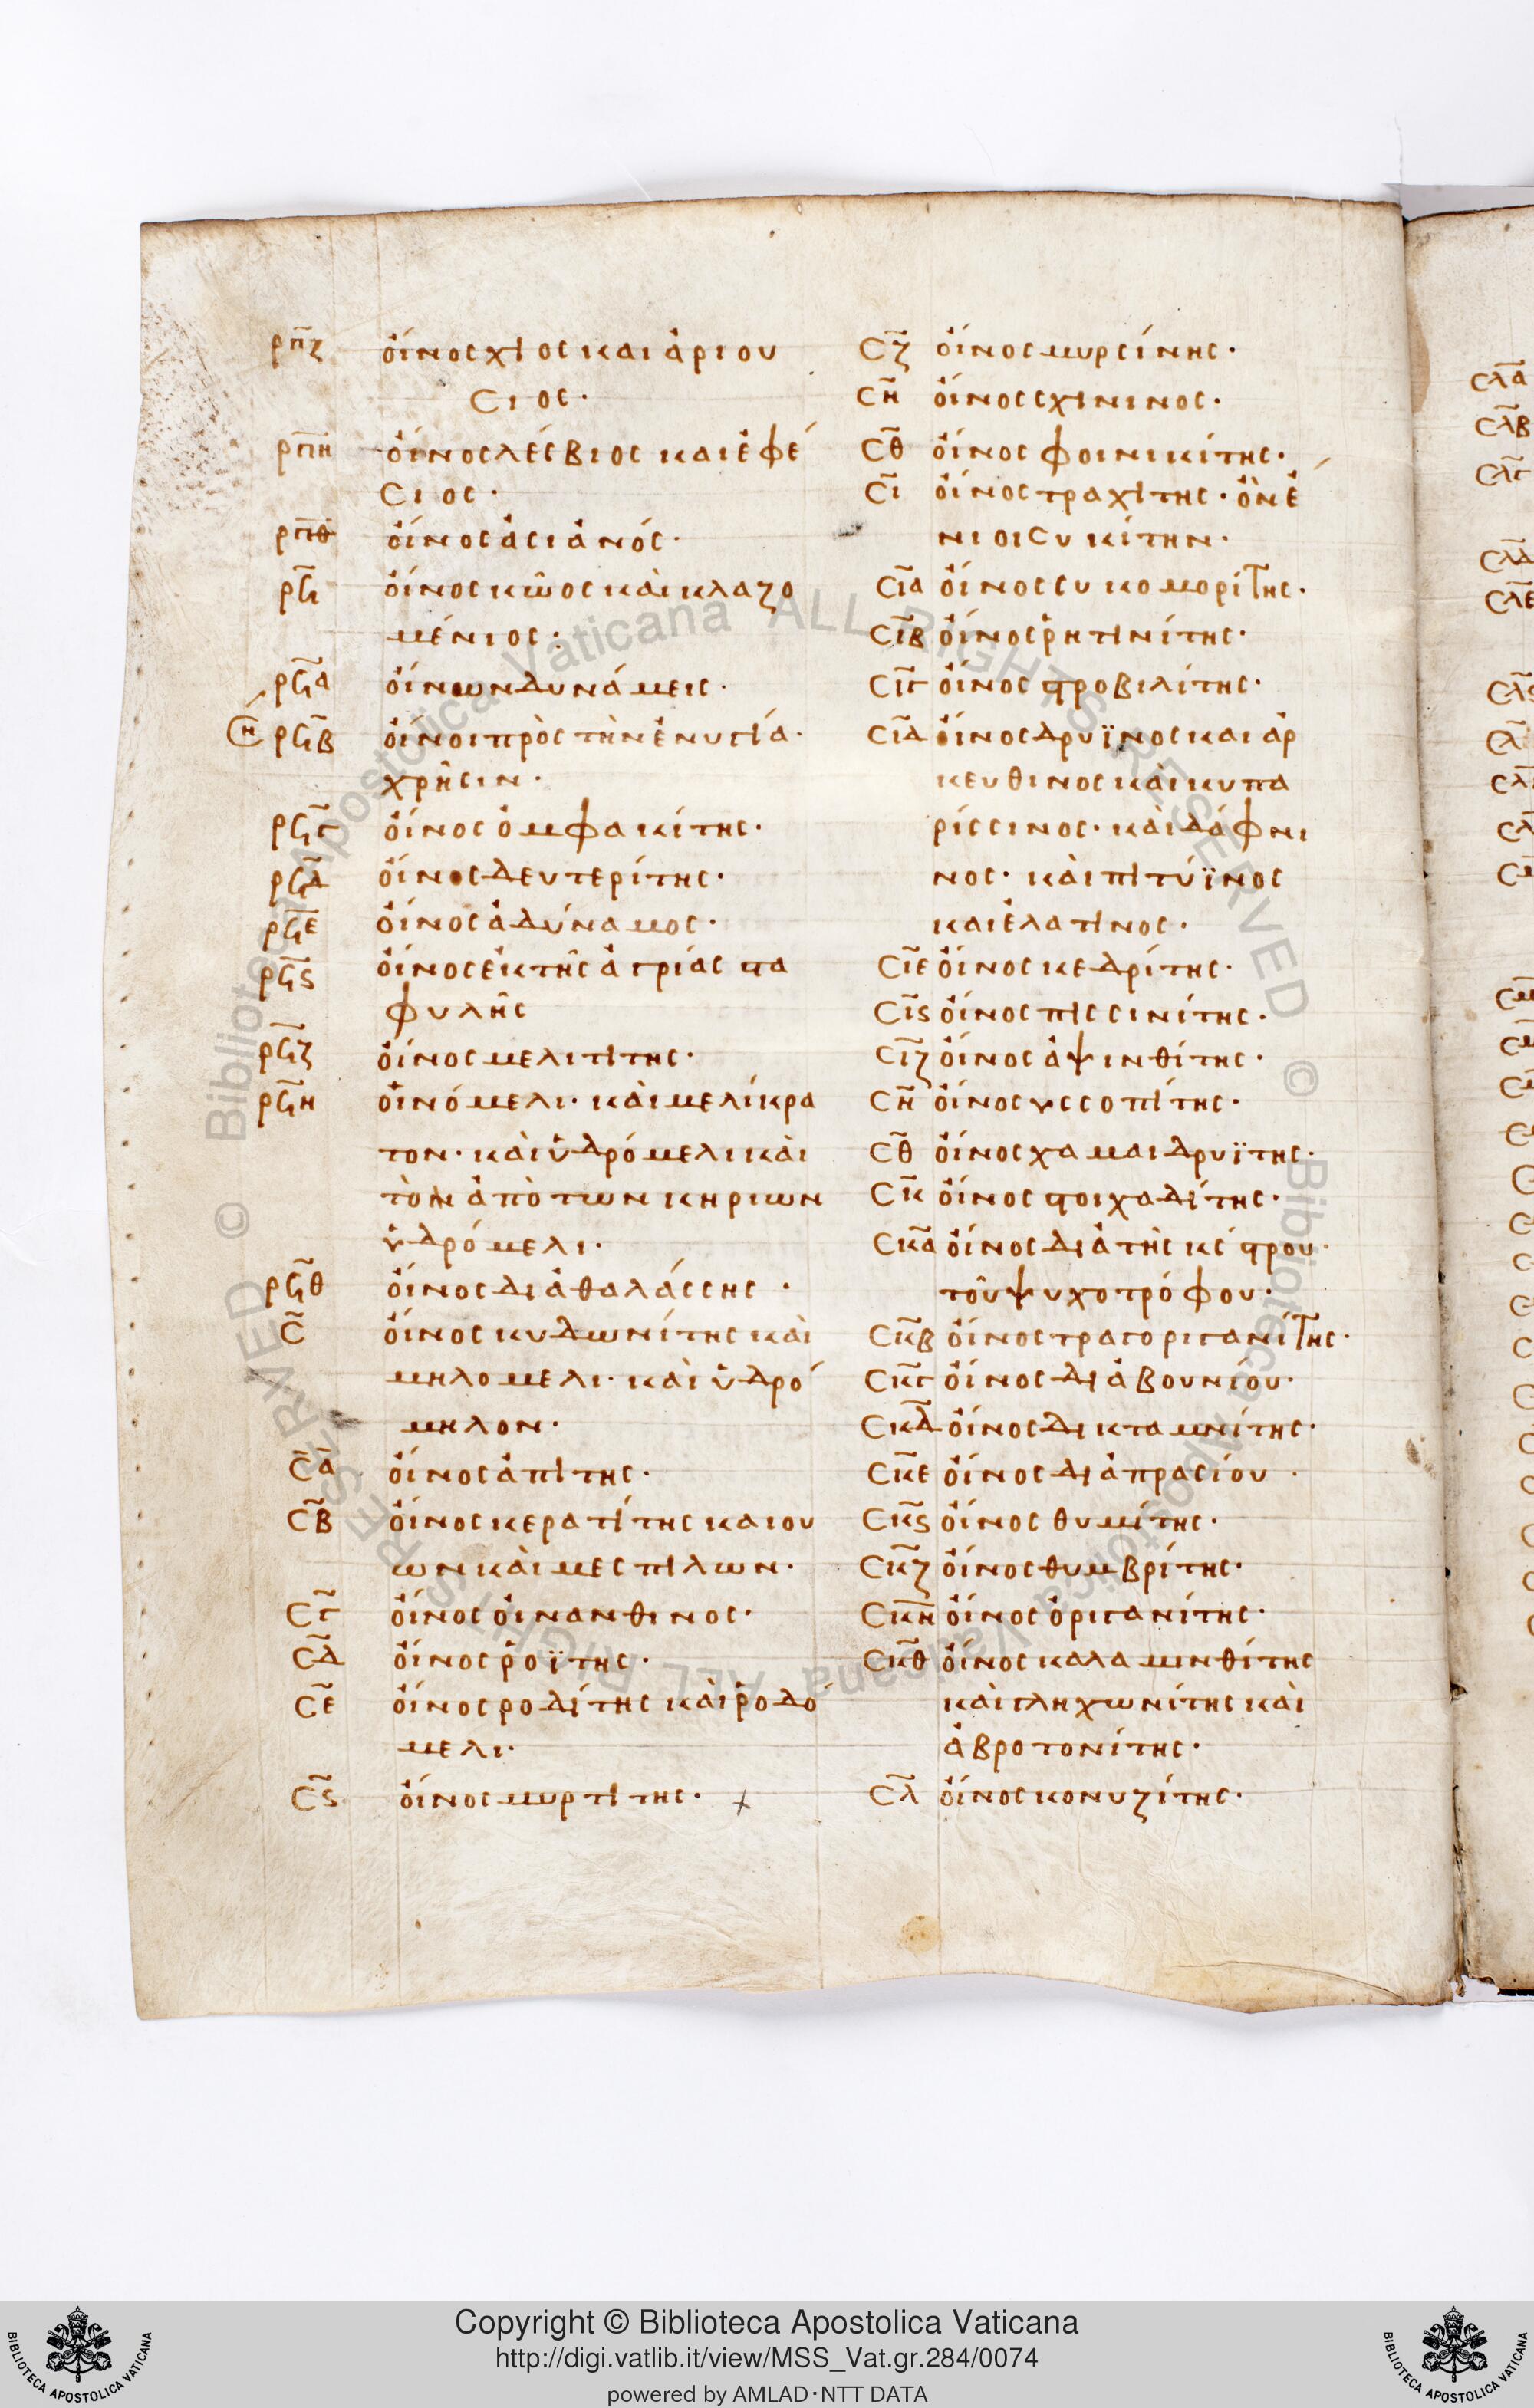 ρπζ οἶνος χῖος και ἀριου
σιος·
ρπη οἶνος λέσβιος και ἐφέ
σιος·
ρπθ οἶνος ἀσιἀνός·
ρϟ οἶνος κῶος καὶ κλαζο
μένιος:
ρϟα οἴνων δυνάμεις·
ρϟβ οἶνοι πρὸς τὴν ἐν ὑγιεία·
χρῆσιν·
ρϟγ οἶνος ὀμφακίτης·
ρϟδ οἶνος δευτερίτης·
ρϟε οἶνος ἀδύναμος·
ρϟϛ οἶνος ἐκ τῆς ἀγρίας στα
φυλῆς
ρϟζ οἶνος μελιτίτης·
ρϟη οἰνόμελι· καὶ μελίκρα
τον· καὶ ὑδρόμελι καὶ
τὸ ἀπὸ των κηριων
ὑδρόμελι·
ρϟθ οἶνος διὰ θαλάσσης·
σ οἶνος κυδωνίτης καὶ
μηλομελι· καὶ ὑδρό
μηλον·
σα οἶνος ἀπίτης·
σβ οἶνος κερατίτης και ου
ων καὶ μεσπίλων·
σγ οἶνος οἰνανθινος·
σδ οἶνος ῥοϊτης·
σε οἶνος ροδίτης καὶ ῥοδό
μελι·
σϛ οἶνος μυρτίτης·
σζ οἶνος μυρσίνης·
ση οἶνος σχίνινος·
σθ οἶνος φοινικίτης·
σι οἶνος τραχίτης· ὃν ἔ
νιοι συκίτην·
σια οἶνος συκομορίτης·
σιβ οἶνος ῥητινίτης·
σιγ οἶνος στροβιλίτης·
σιδ οἶνος δρυϊνος και ἀρ
κευθινος καὶ κυπα
ρίσσινος· καὶ δάφνι
νος· καὶ πιτύϊνος
και ἐλατινος·
σιε οἶνος κεδρίτης·
σιϛ οἶνος πισσινίτης·
σιζ οἶνος ἀψινθίτης·
ση οἶνος υσσοπίτης·
σθ οἶνος χαμαιδρυϊτης·
σκ οἶνος στοιχαδίτης·
σκα οἶνος διὰ τῆς κέστρου·
τοῦ ψυχοτρόφου·
σκβ οἶνος τραγοριγανίτης·
σκγ οἶνος διὰ βουνίου·
σκδ οἶνος δικταμνίτης·
σκε οἶνος διὰ πρασίου·
σκϛ οἶνος θυμίτης·
σκζ οἶνος θυμβρίτης·
σκη οἶνος ὀριγανίτης·
σκθ οἶνος καλαμινθίτης
καὶ γληχωνίτης καὶ
ἀβροτονίτης·
σλ οἶνος κονυζίτης·
σλα
σλβ
σλγ
σλδ
σλε
Copyright © Biblioteca Apostolica Vaticana
http://digi.vatlib.it/view/MSS_Vat.gr.284/0074
powered by AMLAD·NTT DATA
BIBLIOTECA APOSTOLICA VATICANA
BIBLIOTECA APOSTOLICA VATICANA